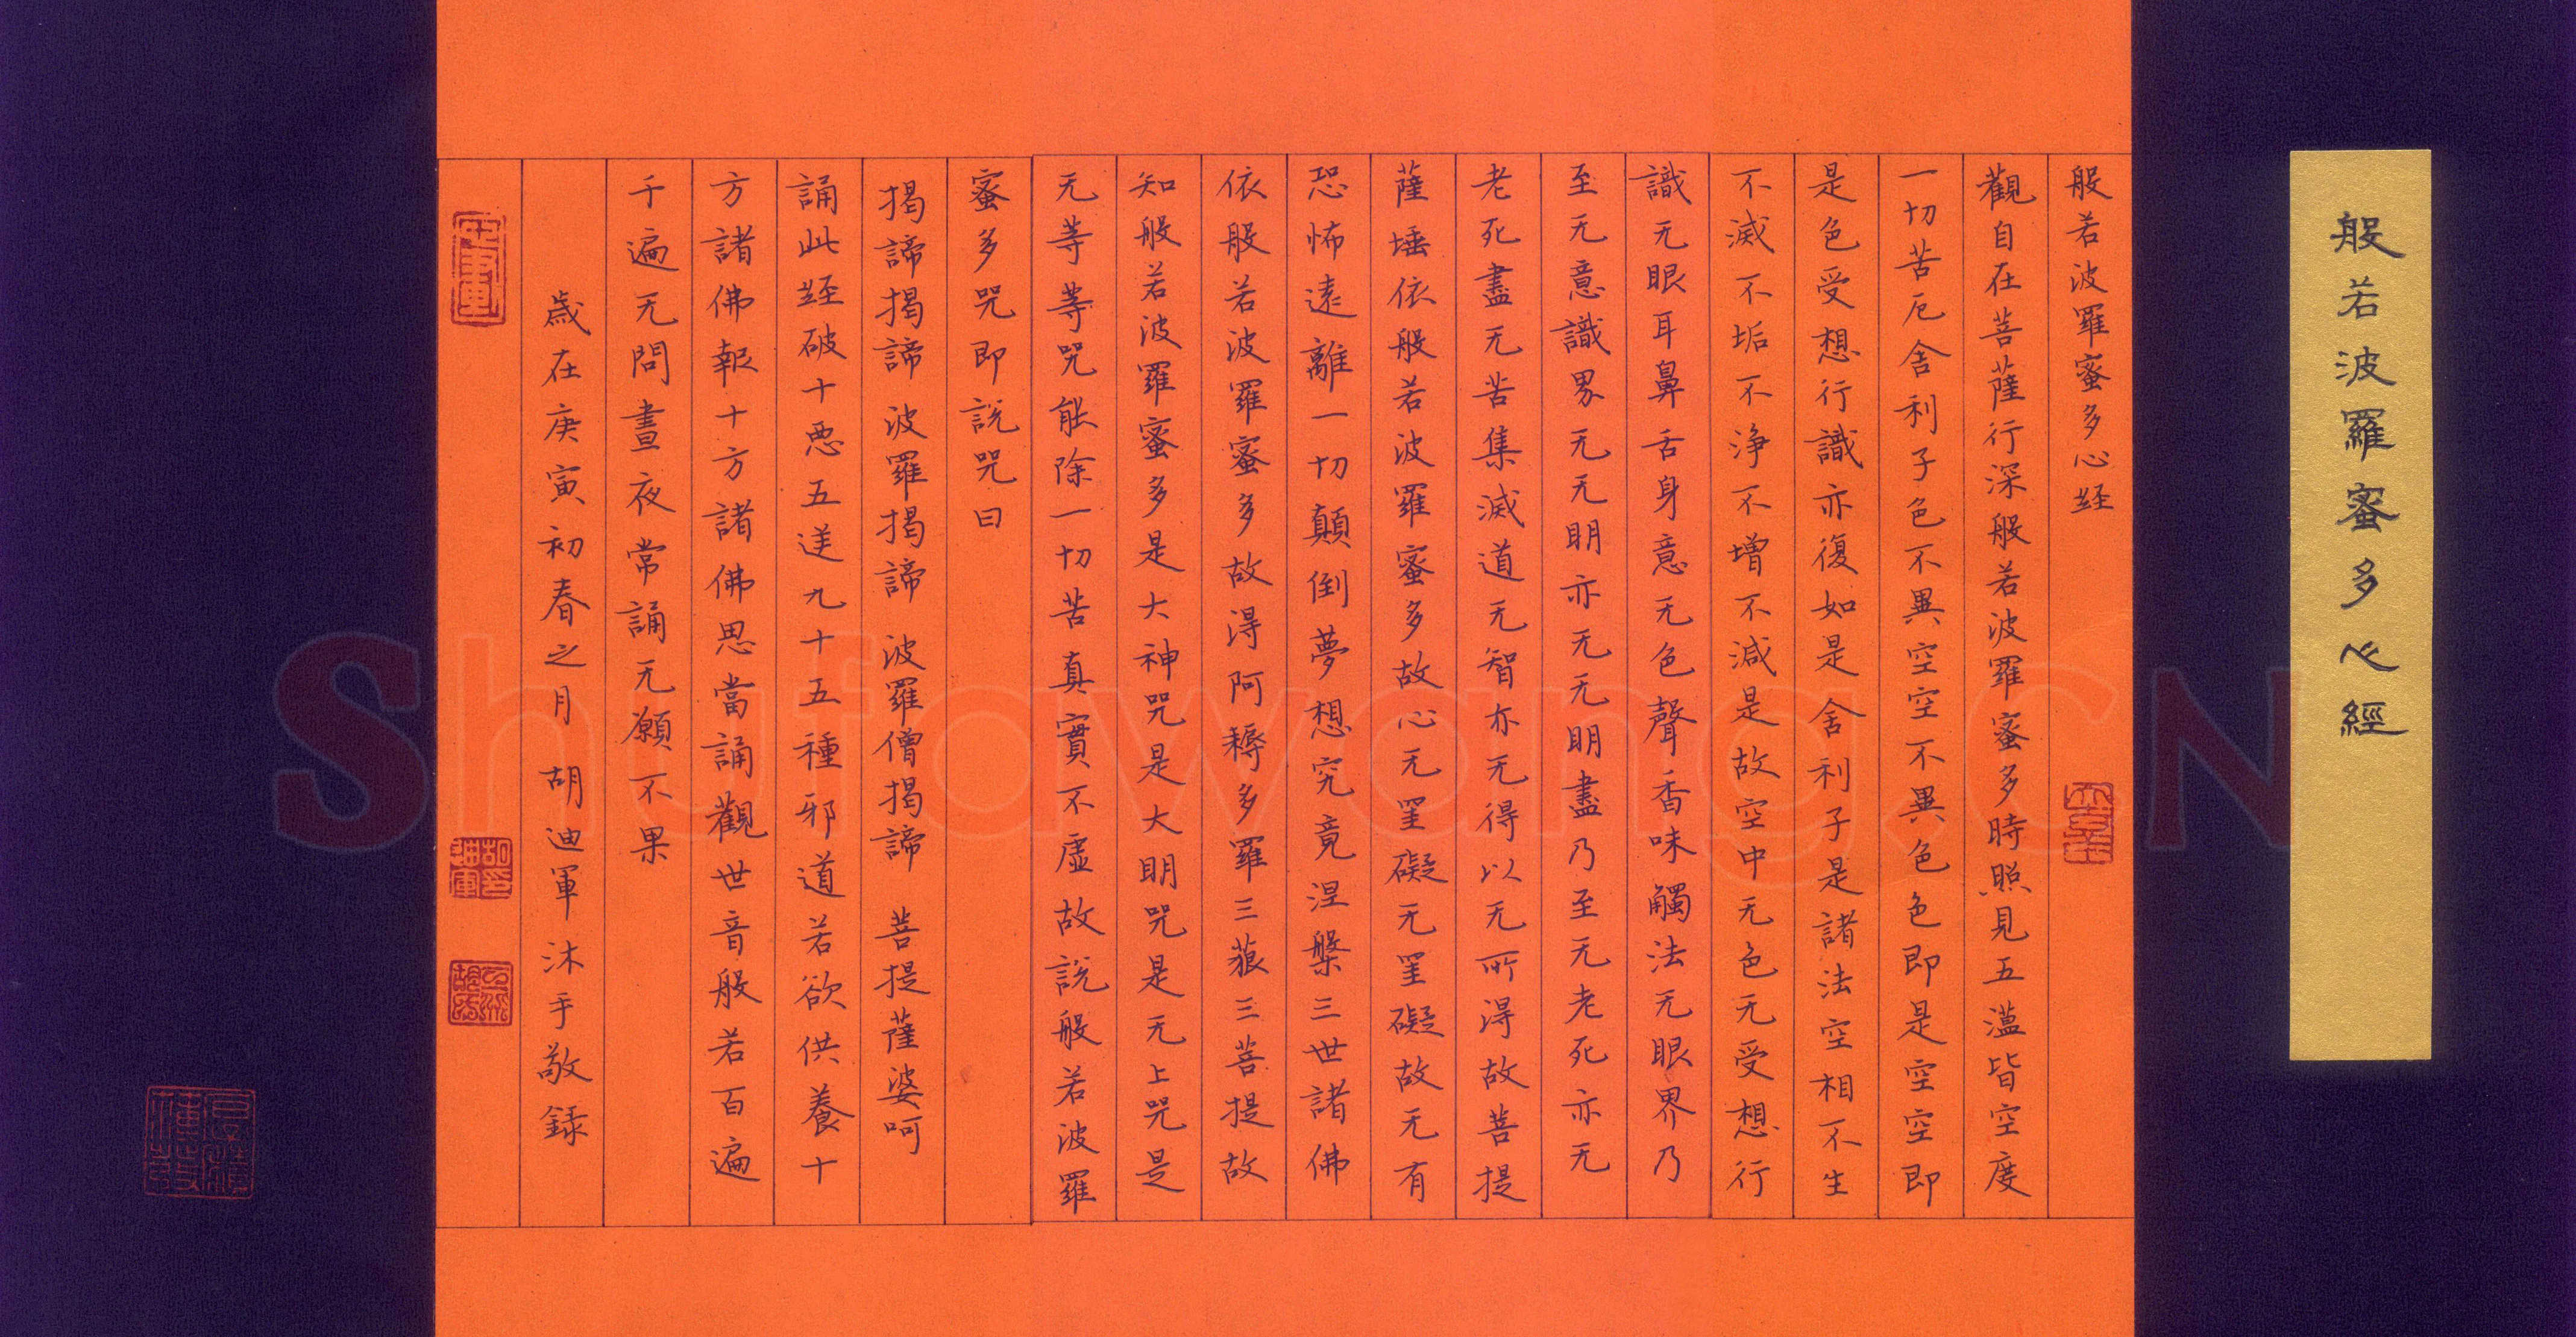 般若波羅蜜多心經
般若波羅蜜多心經
觀自在菩薩行深般若波羅蜜多時照見五蕰皆空度
一切苦厄舍利子色不異空空不異色色即是空空即
是色受想行識亦復如是舍利子是諸法空相不生
不滅不垢不淨不增不減是故空中无色无受想行
識无眼耳鼻舌身意无色聲香味觸法无眼界乃
至无意識界无无明亦无无明盡乃至无老死亦无
老死盡无苦集滅道无智亦无得以无所得故菩提
薩埵依般若波羅蜜多故心无罣礙无罣礙故无有
恐怖遠離一切顛倒夢想究竟涅槃三世諸佛
依般若波羅蜜多故得阿耨多羅三藐三菩提故
知般若波羅蜜多是大神咒是大明咒是无上咒是
无等等咒能除一切苦真實不虛故說般若波羅
蜜多咒即說咒曰
揭諦揭諦 波羅揭諦 波羅僧揭諦 菩提薩婆呵
誦此經破十惡五逆九十五種邪道若欲供養十
方諸佛報十方諸佛思當誦觀世音般若百遍
千遍无問晝夜常誦无願不果
歲在庚寅初春之月 胡迪軍沐手敬錄
Shufawang.CN